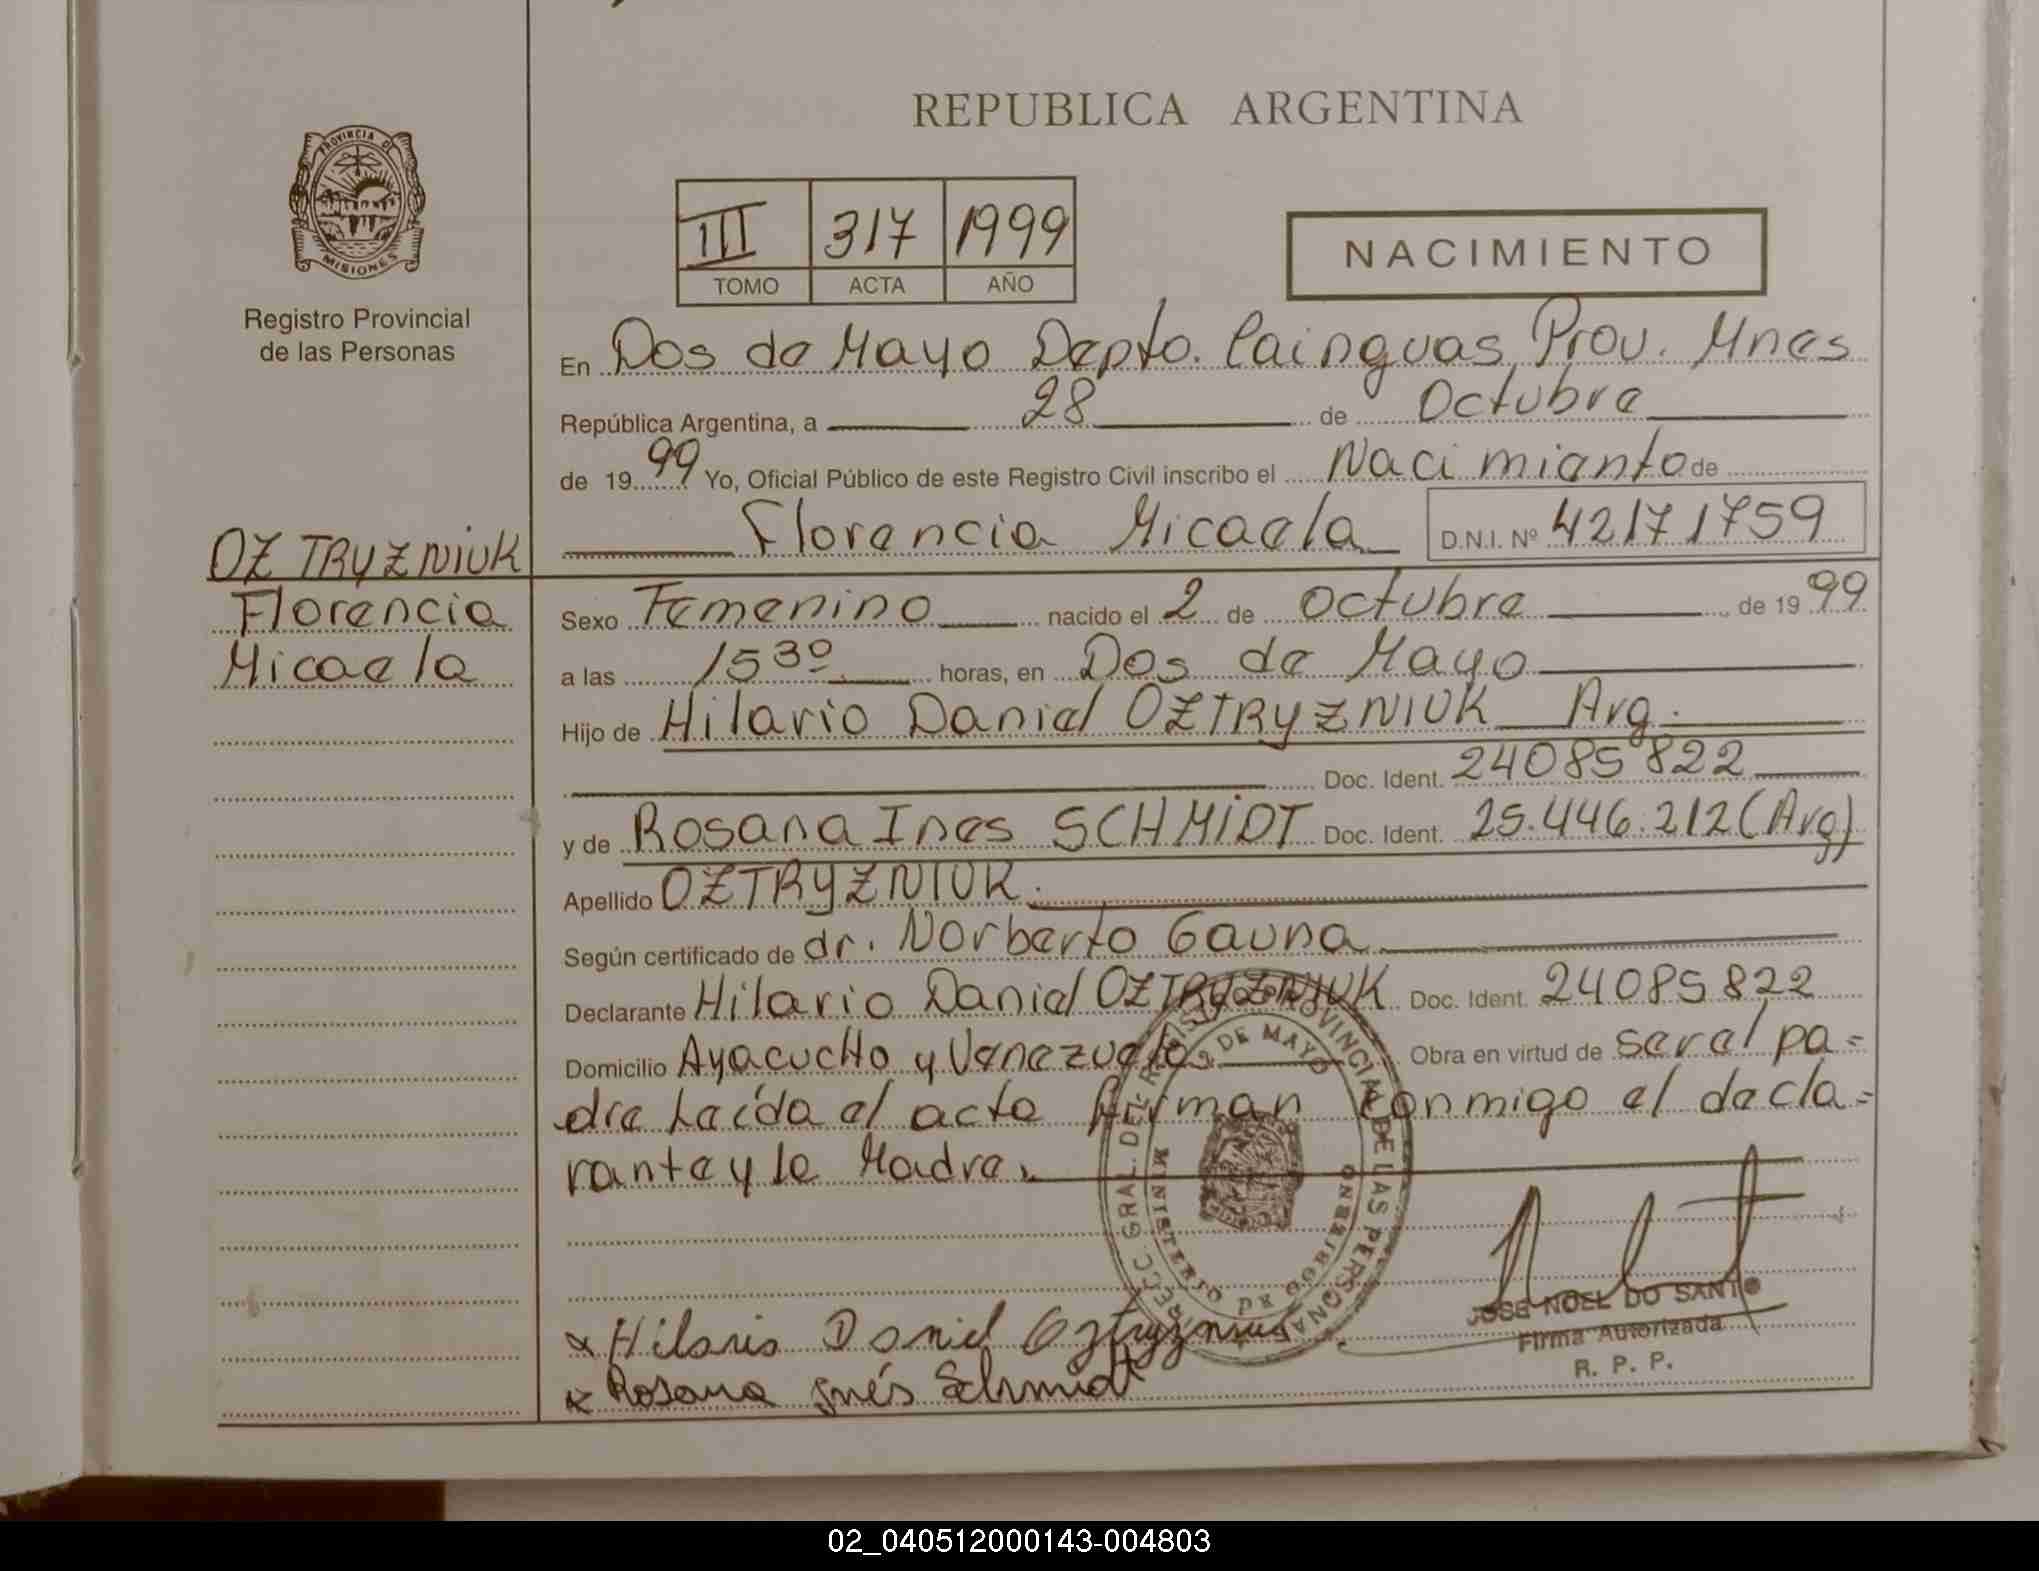 REPUBLICA ARGENTINA
PROVINCIA DE
MISIONES
Registro Provincial
de las Personas
III 317 1999
TOMO ACTA AÑO
NACIMIENTO
En Dos de Mayo Depto. Cainguas Prov. Mnes
República Argentina, a 28 de Octubre
de 1999 Yo, Oficial Público de este Registro Civil inscribo el Nacimiento de
Florencia Micaela D.N.I. Nº 42171759
OZTRYZNIUK
Florencia
Micaela
Sexo Femenino nacido el 2 de octubre de 1999
a las 15 30 horas, en Dos de Mayo
Hijo de Hilario Daniel OZTRYZNIUK Arg.
Doc. Ident. 24085822
y de Rosana Ines SCHMIDT Doc. Ident. 25.446.212 (Arg)
Apellido OZTRYZNIUK.
Según certificado de dr. Norberto Gauna
Declarante Hilario Daniel OZTRYZNIUK Doc. Ident. 24085822
Domicilio Ayacucho y Venezuela Obra en virtud de ser el pa=
dre Leída el acta firman conmigo el decla=
rante y la Madre.
GRAL. DEL REGISTRO PROVINCIAL DE LAS PERSONAS
2 DE MAYO
MINISTERIO DE GOBIERNO
Hilario Daniel Oztryzniuk
Rosana Inés Schmidt
JOSE NOEL DO SANTO
Firma Autorizada
R. P. P.
02_040512000143-004803